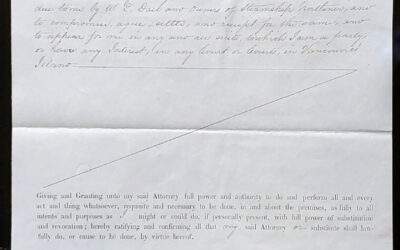 due to me by W. G. Dail and Owners of Steamship Brothers, and
to compromise, agree, settle, and receipt for the same, and
to appear for me in any and all suits, which I am a party,
or have any Interest, in any Court or Courts, in Vancouver's
Island
Giving and Granting unto my said Attorney full power and authority to do and perform all and every
act and thing whatsoever, requisite and necessary to be done, in and about the premises, as fully to all
intents and purposes as I might or could do, if personally present, with full power of substitution
and revocation; hereby ratifying and confirming all that my said Attorney or substitute shall law-
fully do, or cause to be done, by virtue hereof.